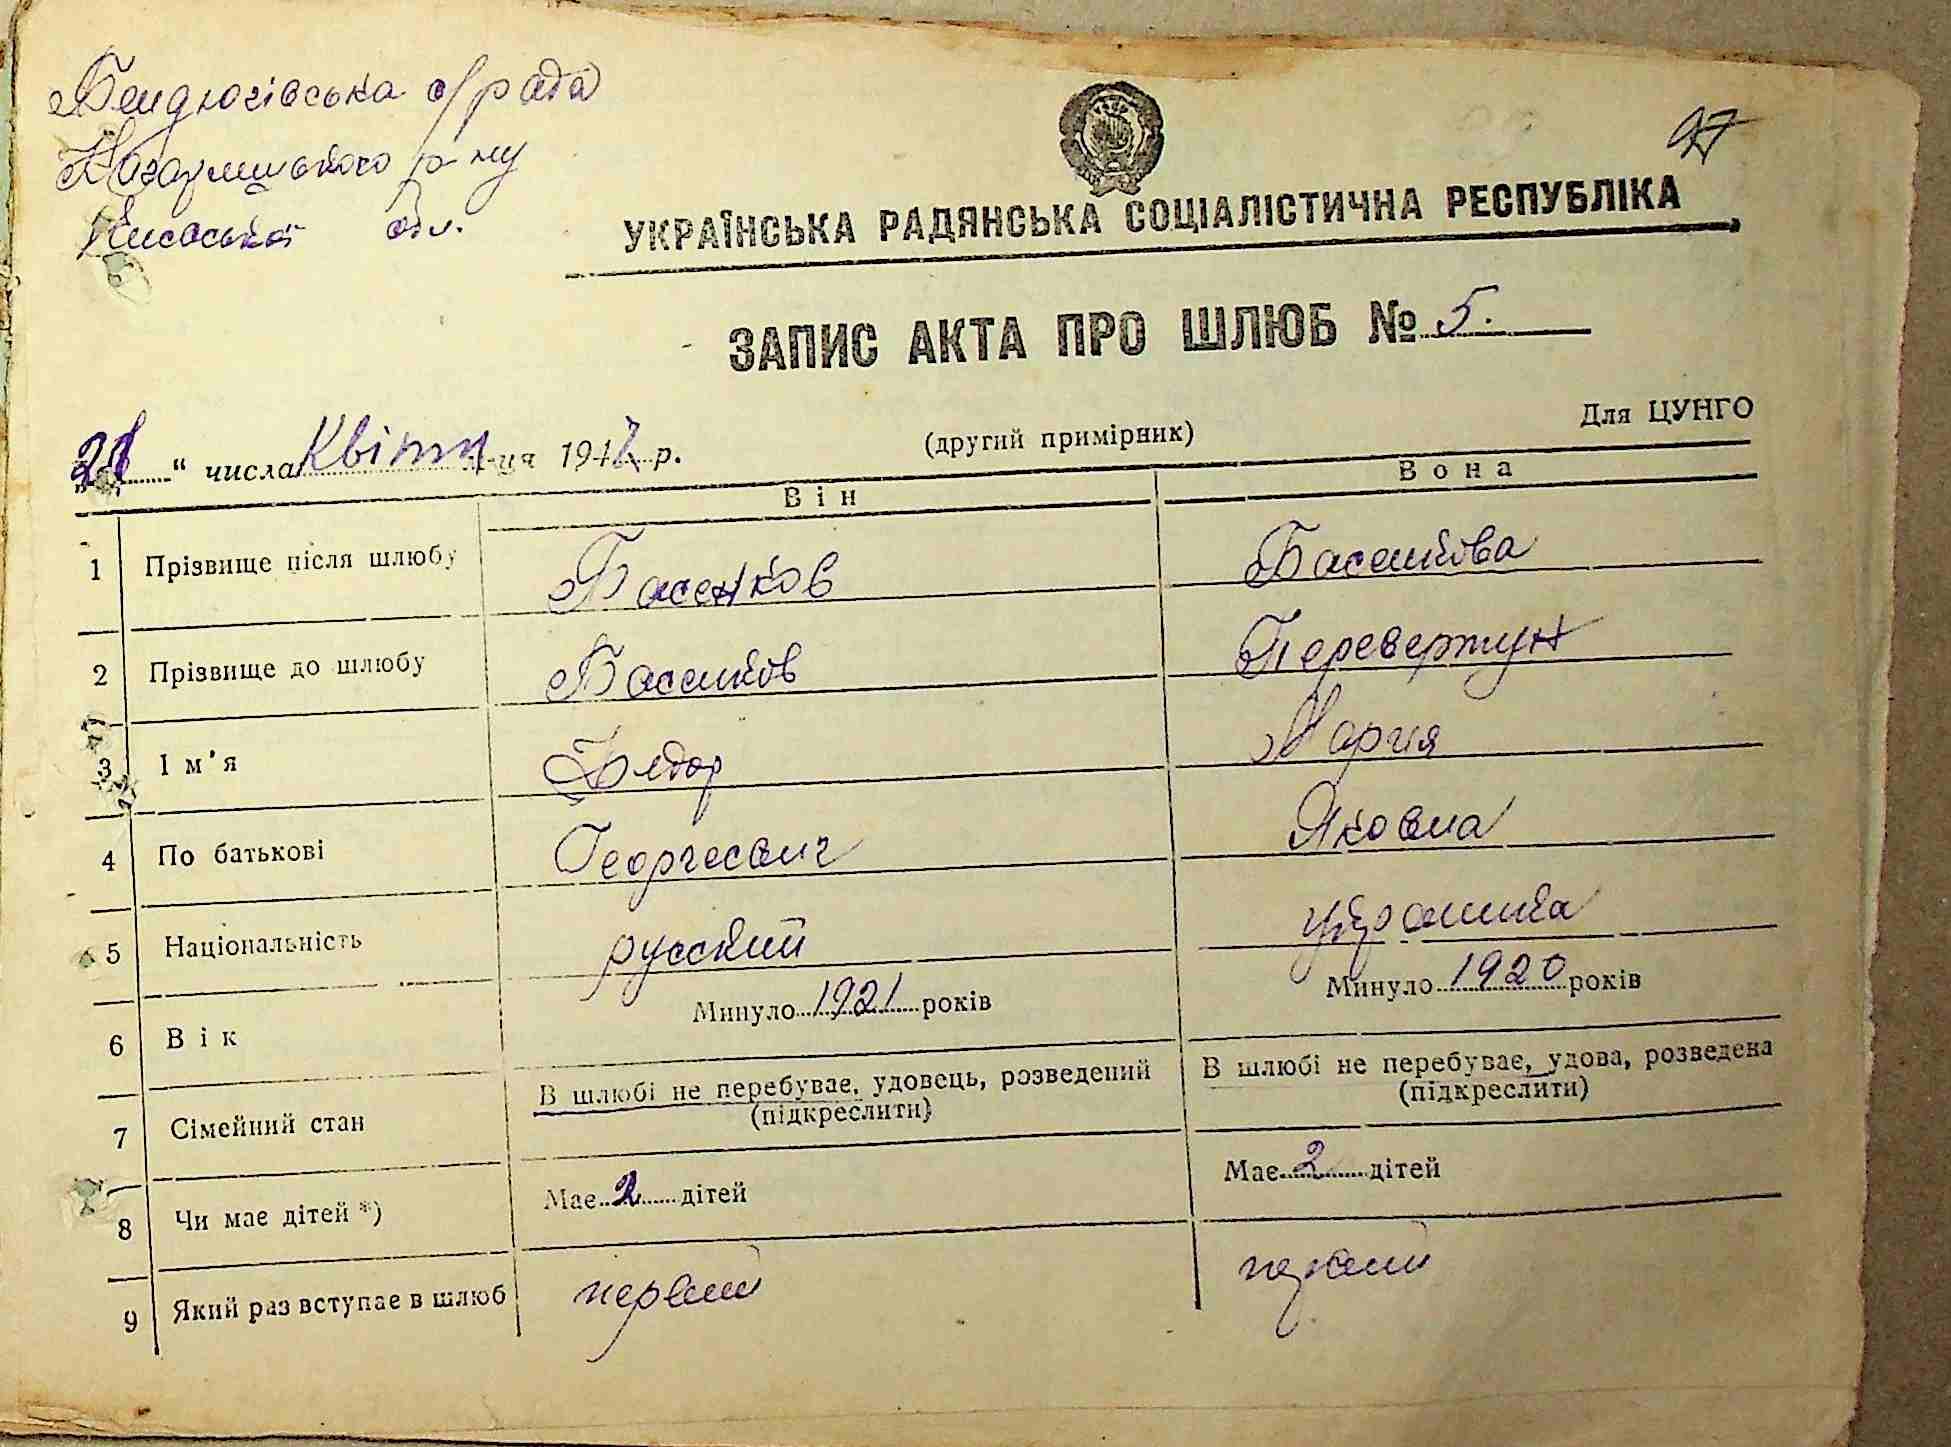 Бендюгівська с/рада
Кагарлицького р-ну
Київської обл.
97
УКРАЇНСЬКА РАДЯНСЬКА СОЦІАЛІСТИЧНА РЕСПУБЛІКА
ЗАПИС АКТА ПРО ШЛЮБ № 5.
(другий примірник) Для ЦУНГО
" числа Квітня м-ця 1947 р.
Він Вона
1 Прізвище після шлюбу Басенков Басенкова
2 Прізвище до шлюбу Басенков Перевертун
3 Ім'я Фёдор Мария
4 По батькові Георгиевич Яковна
5 Національність русский украинка
6 Вік Минуло 1921 років Минуло 1920 років
7 Сімейний стан В шлюбі не перебуває, удовець, розведений (підкреслити) В шлюбі не перебуває, удова, розведена (підкреслити)
8 Чи має дітей *) Має 2 дітей Має 2 дітей
9 Який раз вступає в шлюб первый первый